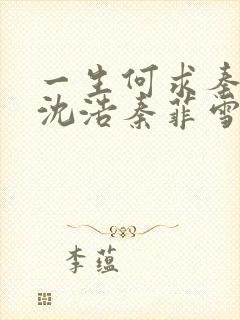 一生何求秦
沈浩秦菲雪
李蕴